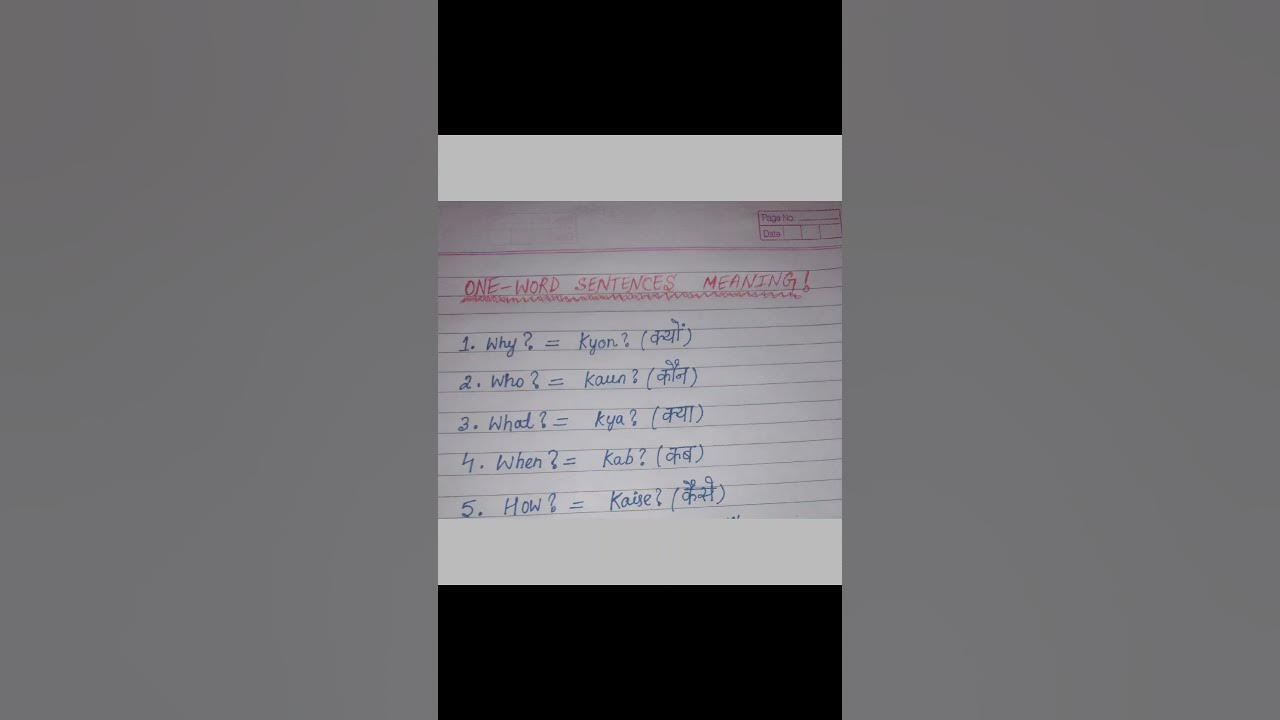 Page No.
Date
ONE-WORD SENTENCES MEANING!
1. Why? = Kyon? (क्यों)
2. Who? = Kaun? (कौन)
3. What? = Kya? (क्या)
4. When? = Kab? (कब)
5. How? = Kaise? (कैसे)